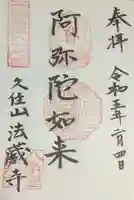 奉拝
令和五年二月四日
阿弥陀如来
久住山 法蔵寺